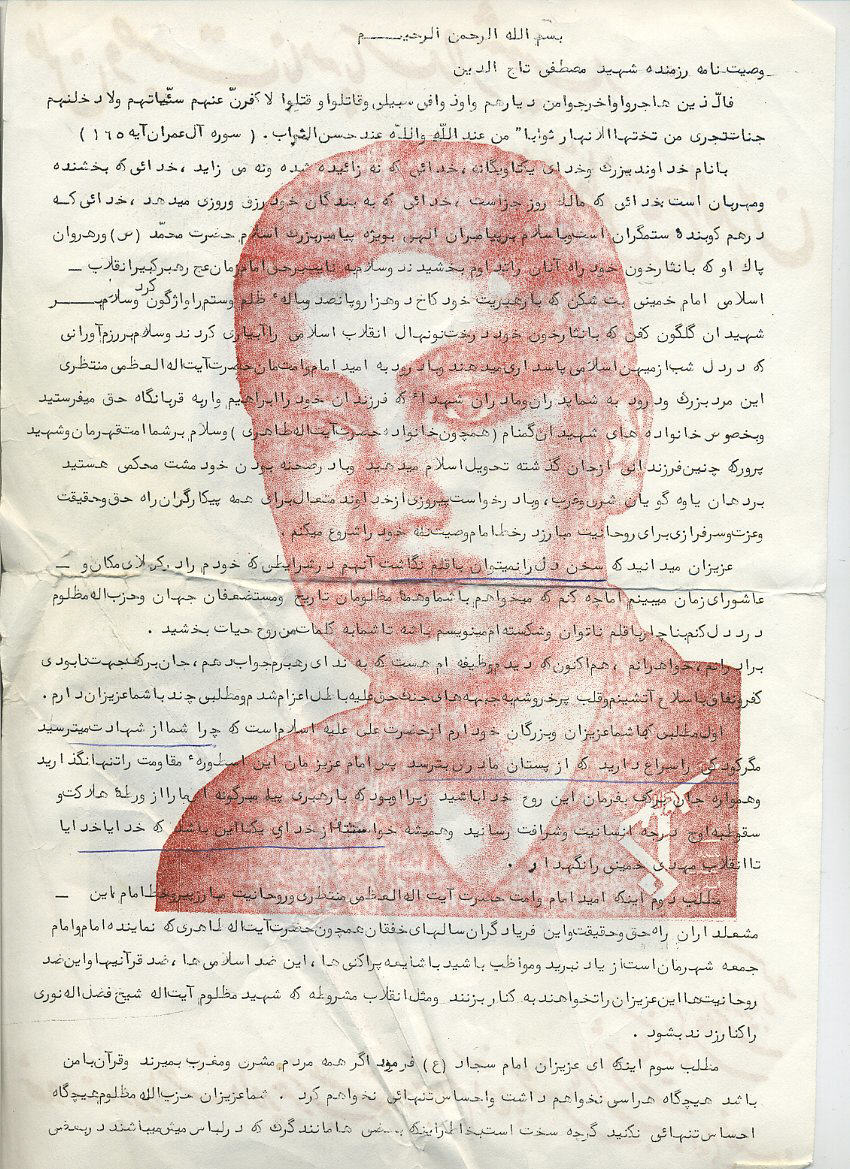 بسم الله الرحمن الرحیـــــم
وصیت نامه رزمنده شهید مصطفی تاج الدین
فالّذین هاجروا واخرجوا من دیارهم واوذوا فی سبیلی وقاتلوا و قتلوا لا کفرنّ عنهم سئّیاتهم ولا دخلنهم
جنات تجری من تحتها الانهار ثوابا" من عند اللّه واللّه عنده حسن الثواب . ( سوره آل عمران آیه ۱٦۵ )
بانام خداوند بزرگ وخدای یکتا ویگانه ،خدائی که نه زائیده شده ونه می زاید ،خدائی که بخشنده
ومهربان است خدائی که مالك روز جزاست ،خدائی که به بندگان خود رزق وروزی میدهد ،خدائی کـه
درهم کوبنده ستمگران است وباسلام بر پیامبران الهی بویژه پیامبر بزرگ اسلام حضرت محمّد (س) ورهروان
پاك او که بانثار خون خود راه آنان را تداوم بخشیدند وسلام به نایب برحق امام زمان عج رهبر کبیر انقلاب ـ
اسلامی امام خمینی بت شکن که با رهبریت خود کاخ دوهزار وپانصد ساله ٔ ظلم وستم را واژگون کرد وسلام بـــر
شهیدان گلگون کفن که بانثار خون خود درخت نونهال انقلاب اسلامی را آبیاری کردند وسلام بر رزم آورانی
که در دل شب از میهن اسلامی پاسداری میدهند وبا درود به امید امام وامت مان حضرت آیت اله العظمی منتظری
این مرد بزرگ ودرود به شما پدران ومادران شهداء که فرزندان خود را ابراهیم وار به قربانگاه حق میفرستید
وبخصوص خانواده های شهیدان گمنام (همچون خانواده حضرت آیت اله طاهری ) وسلام بر شما امت قهرمان وشهید
پرور که چنین فرزندانی ازجان گذشته تحویل اسلام میدهید وبا درصحنه بودن خود مشت محکمی هستید
بر دهان یاوه گویان شرق وغرب، وبا درخواست پیروزی از خداوند متعال برای همه پیکارگران راه حق وحقیقت
وعزت وسرفرازی برای روحانیت مبارز در خط امام وصیت نامه خود را شروع میکنم .
عزیزان میدانید که سخن دل را نمیتوان با قلم نگاشت آنهم در شرایطی که خودم را در کربلای مکان و ـ
عاشورای زمان میبینم اما چه کنم که میخواهم باشما وهمه مظلومان تاریخ ومستضعفان جهان وحزب اله مظلوم
درد دل کنم بناچار با قلم ناتوان وشکسته ام مینویسم باشد تا شما به کلمات من روح حیات بخشید .
برادرانم ،خواهرانم ،هم اکنون که دیدم وظیفه ام هست که به ندای رهبرم جواب دهم ،جان برکف جهت نابودی
کفر ونفاق با سلاح آتشینم وقلب پرخروشم به جبهه های جنگ حق علیه باطل اعزام شدم ومطلبی چند با شما عزیزان دارم .
اول مطلبی که با شما عزیزان وبزرگان خود دارم از حضرت علی علیه اسلام است که چرا شما از شهادت میترسید
مگر کودکی را سراغ دارید که از پستان مادرش بترسد پس امام عزیزمان این اسطوره ٔ مقاومت را تنها نگذارید
وهمواره جان برکف بفرمان این روح خدا باشید زیرا او بود که با رهبری پیامبرگونه اش ما را از ورطه ٔ هلاکت و
سقوط به اوج درجه انسانیت وشرافت رسانید وهمیشه خواستتا از خدای یکتا این باشد که خدایا خدایا
تا انقلاب مهدی خمینی را نگهدار .
مطلب دوم اینکه امید امام وامت حضرت آیت اله العظمی منتظری وروحانیت مبارز پیرو خط امام ،این ـ
مشعلداران راه حق وحقیقت واین فریادگران سالهای خفقان همچون حضرت آیت اله طاهری که نماینده امام وامام
جمعه شهرمان است از یاد نبرید ومواظب باشید با شایعه پراکنی ها ، این ضد اسلامی ها ،ضد قرآنیها واین ضد
روحانیت ها این عزیزان را نخواهند به کنار بزنند ومثل انقلاب مشروطه که شهید مظلوم آیت اله شیخ فضل اله نوری
را کنار زدند بشود .
مطلب سوم اینکه ای عزیزان امام سجاد (ع) فرمود اگر همه مردم مشرق ومغرب بمیرند وقرآن با من
باشد هیچگاه هراسی نخواهم داشت واحساس تنهائی نخواهم کرد . شما عزیزان حزب الله مظلوم هیچگاه
احساس تنهائی نکنید گرچه سخت است بخاطر اینکه بعضی ها مانند گرگ که در لباس میش میباشند در بعضی